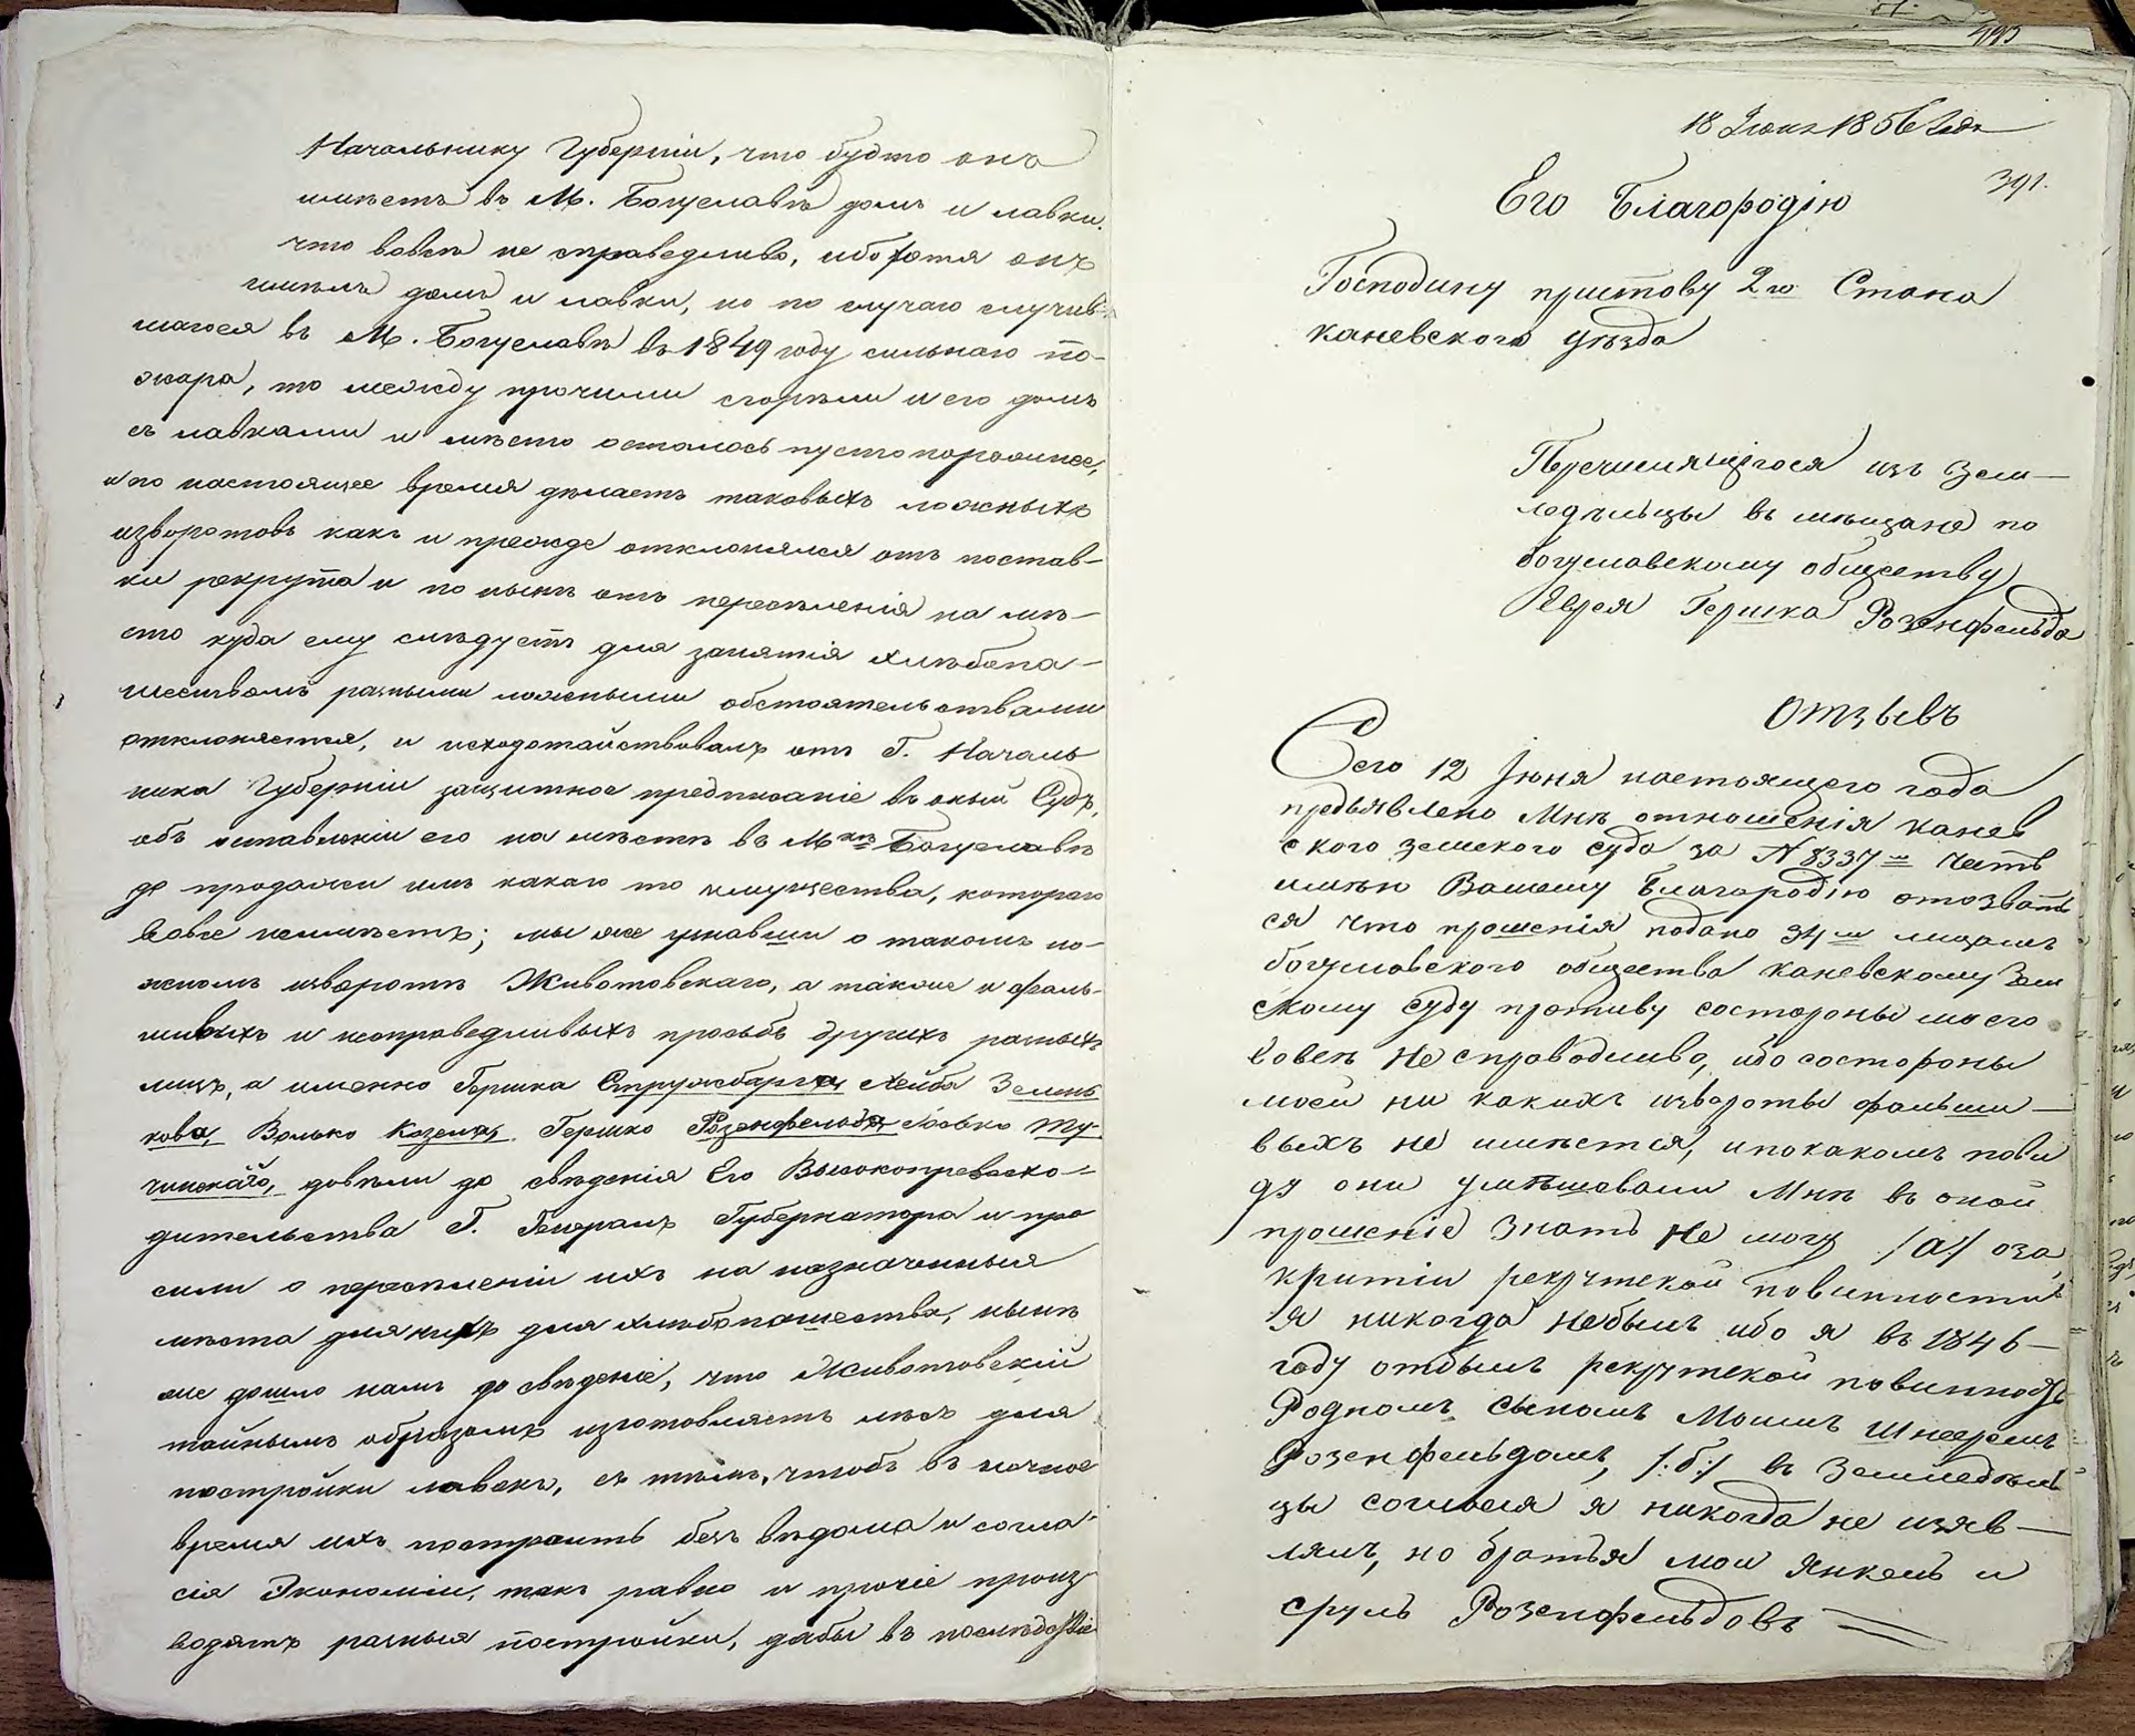 Начальнику Губерніи, что будто онъ
имѣетъ въ М. Богуславѣ домъ и лавки.
что вовсе не справедливо, ибо хотя онъ
имѣлъ домъ и лавки, но по случаю случив-
шагося въ М. Богуславѣ въ 1849 году сильнаго по-
жара, то между прочими сгорѣли и его домъ
съ лавками и мѣсто осталось пустопорожнее,
и по настоящее время дѣлаетъ таковыхъ ложныхъ
изворотовъ какъ и прежде отклонялся отъ постав-
ки рекрута и по нынѣ отъ переселенія на мѣ-
сто куда ему слѣдуетъ для занятія хлѣбопа-
шествомъ разными ложными обстоятельствами
отклоняется, и исходотайствовалъ отъ Г. Началь
ника Губерніи защитное предписаніе въ оный Судъ,
объ оставленіи его на мѣстѣ въ Мкѣ Богуславѣ
до продажи имъ какаго то имущества, котораго
вовсе неимѣетъ; мы же узнавши о такомъ ло-
жномъ изворотѣ Животовскаго, а также и фаль-
шивыхъ и несправедливыхъ просьбъ другихъ разныхъ
лицъ, а именно Гершка Стружбарга, Лейба Зелень
кова, Волько Козела, Гершко Розенфельда Іосько Ту-
чинскаго, довели до свѣденія Его Высокопревосхо-
дительства Г. Генералъ Губернатора и про
сили о переселеніи ихъ на назначенныя
мѣста для нихъ для хлѣбопашества, нынѣ
же дошло намъ до свѣденіе, что Животовскій
тайнымъ образомъ изготовляетъ лѣсъ для
постройки лавокъ, съ тѣмъ, чтобъ въ ночное
время ихъ построить безъ вѣдома и согла-
сія Экономіи, такъ равно и прочіе произ
водятъ разныя постройки, дабы въ послѣдствіе
18 Іюня 1856 Года
391.
Его Благородію
Господину приставу 2го Стана
каневского уѣзда
Перечислящагося изъ Зем-
ледѣльцы въ мѣщане по
богуславскому обществу
Еврея Гершка Розенфельда
Отзывъ
Сего 12 Іюня настоящего года
предъявлено Мнѣ отношенія канев
ского земского суда за N 8337м Честь
имѣю Вашему Благородію отозвать
ся что прошенія подано 34м лицамъ
богуславского общества каневскому Зем
скому суду противу состороны моего
вовсѣ не справодливо, ибо состороны
моей ни какихъ извороты фальши-
выхъ не имѣется, и покакомъ пово
ду они умѣшовали Мнѣ въ оной
прошеніе Знать не могу /:а:/ оза
критіи рекрутской повинности
я никогда небылъ ибо я въ 1846
году отбылъ рекрутской повинность
Роднымъ сыномъ Моимъ Шнеремъ
Розенфельдомъ, /:б:/ въ Земледѣль
цы согласія я никогда не изяв-
лялъ, но братья мои Янкель и
сруль Розенфельдовъ